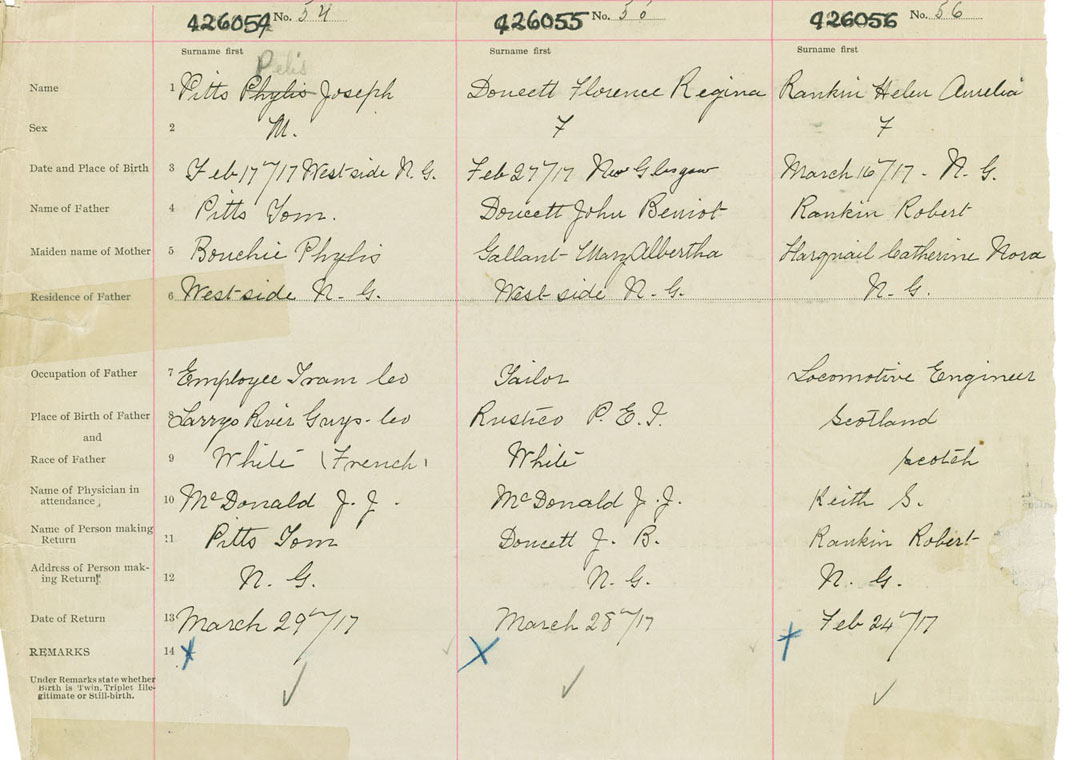 426054 No. 54 426055 No. 426056 No. 56
Surname first Surname first Surname first
Pelis
Name 1 Pitts Phylis Joseph Doucett Florence Regina Rankin Helen Amelia
Sex 2 M. F F
Date and Place of Birth 3 Feb 17th/17 West-side N. G. Feb 27th/17 New Glasgow March 16th/17 - N. G.
Name of Father 4 Pitts Tom. Doucett John Beniot Rankin Robert
Maiden name of Mother 5 Bouchie Phylis Gallant - Mary Albertha Harquail Catherine Nora
Residence of Father 6 West-side N. G. West side N. G. N. G.
Occupation of Father 7 Employee Tram Co Tailor Locomotive Engineer
Place of Birth of Father 8 Larrys River Guys - Co Rustico P. E. I. Scotland
and
Race of Father 9 White (French) White Scotch
Name of Physician in
attendance, 10 McDonald J. J. McDonald J. J. Keith S.
Name of Person making
Return 11 Pitts Tom Doucett J. B. Rankin Robert
Address of Person mak-
ing Return 12 N. G. N. G. N. G.
Date of Return 13 March 29th/17 March 28th/17 Feb 24th/17
REMARKS 14 X X X
Under Remarks state whether
Birth is Twin, Triplet Ille-
gitimate or Still-birth.